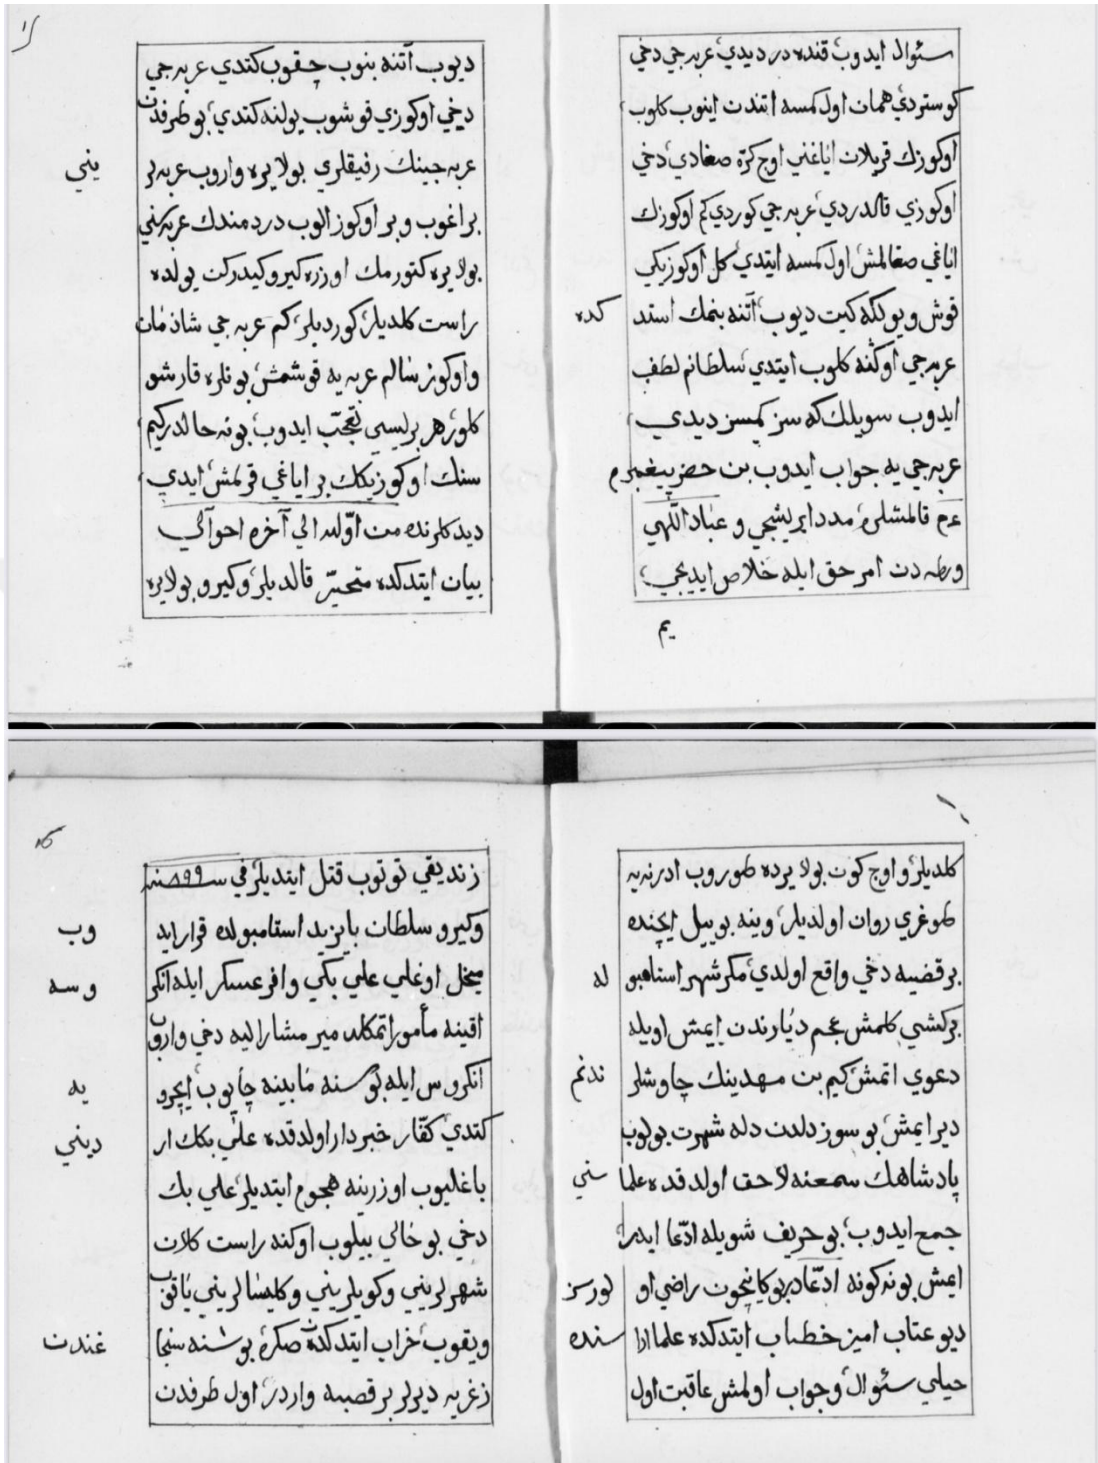 سئوال ايدوب قنده در ديدي عربه جي دخي
كوستردي همان اول كمسه اتندن اينوب كلوب
اوكوزك قريلان اياغني اوج كرّه صغادي دخي
اوكوزي قالدردي عربه جي كوردي كم اوكوزك
اياغي صغالمش اول كمسه ايتدي كل اوكوزيكي
قوش ويولكه كيت ديوب آتنه بنمك استد كده
عربه جي اوكنه كلوب ايتدي سلطانم لطف
ايدوب سويلك كه سز كمسز ديدي
عربه جي يه جواب ايدوب بن حضر پيغمبرم
عرم قالمشلره مدد ايريشجي و عباد اللّهي
ورطه دن امر حق ايله خلاص ايديجي
يم
ديوب آتنه بنوب چقوب كتدي عربه جي
دخي اوكوزي قوشوب يولنه كتدي بو طرفدن
عربه جينك رفيقلري بولايره واروب عربه لر يني
براغوب وبر اوكوز الوب دردمندك عربه سني
بولايره كتورمك اوزره كيرو كيدركن يولده
راست كلديلر كورديلر كم عربه جي شادمان
واوكوز سالم عربه يه قوشمش بونلره قارشو
كلور هر بريسي تعجّب ايدوب بو نه حالدر كيم
سنك اوكوزيكك بر اياغي قرلمش ايدي
ديدكلرنده من اوّله الي آخره احوالي
بيان ايتدكده متحيّر قالديلر وكيرو بولايره
كلديلر و اوج كون بولايرده طوروب ادرنه يه
طوغري روان اولديلر وينه بو ييل ايچنده
بر قضيه دخي واقع اولدي مكر شهر استامبو له
بر كشي كلمش عجم ديارندن ايمش اويله
دعوي اتمش كيم بن مهدينك چاوشلر ندنم
دير ايمش بو سوز دلدن دله شهرت بولوب
پادشاهك سمعنه لاحق اولدقده علما سني
جمع ايدوب بو حريف شويله ادّعا ايدر
ايمش بو نه كونه ادّعادر بوكا نيچون راضي او لورسز
ديو عتاب اميز خطاب ايتدكده علما ارا سنده
خيلي سئوال وجواب اولمش عاقبت اول
زنديقي توتوب قتل ايتديلر في سنه ٨٩٩
وكيرو سلطان بايزيد استامبولده قرار ايد وب
ميخل اوغلي علي بكي وافر عسكر ايله انكر وسه
اقينه مأمور اتمكله مير مشار اليه دخي واروب
انكروس ايله بوسنه مابينه چاپوب ايچرو يه
كتدي كفّار خبردار اولدقده علي بكك ار ديني
باغليوب اوزرينه هجوم ايتديلر علي بك
دخي بو حالي بيلوب اوكنه راست كلان
شهرلريني وكويلريني وكليسالريني ياقوب
ويقوب خراب ايتدكدن صكره بوسنه سنجا غندن
زغريه ديرلر بر قصبه واردر اول طرفدن